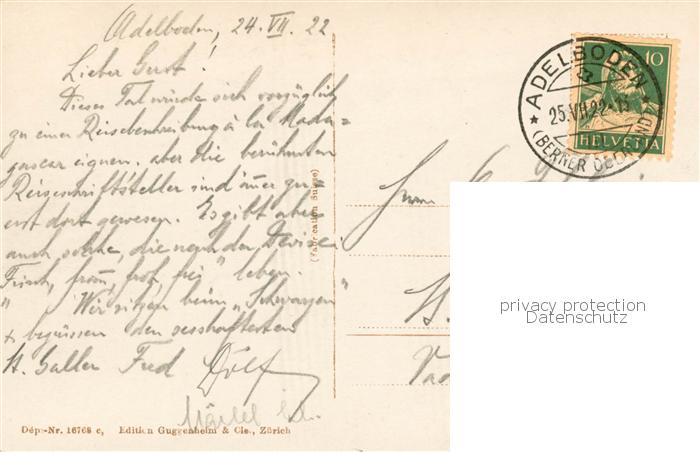 Adelboden, 24. VII. 22
Lieber Gerst!
Dieses Tal würde sich vorzüglich
zu einer Reisebeschreibung à la Mada-
gascar eignen. aber die berühmten
Reiseschriftsteller sind immer zu-
erst dort gewesen. Es gibt aber
auch solche, die nach der Devise:
"Frisch, fromm, froh, frei" leben.
Wir sitzen beim "Schwarzen"
+ begrüssen den sesshaftesten
St. Galler Fred Dölf
Dép.-Nr. 16768 c, Edition Guggenheim & Cie., Zürich
(Fabrication Suisse)
ADELBODEN
25.VII.22
(BERNER OBERLAND)
10
HELVETIA
Herrn
St.
privacy protection
Datenschutz